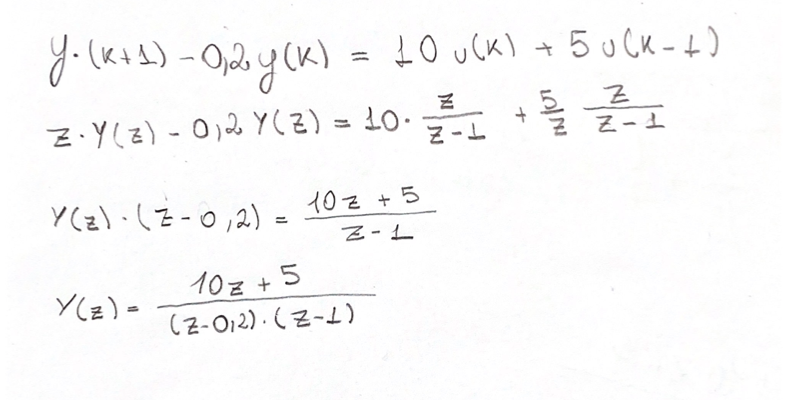 y·(k+1) - 0,2 y(k) = 10 u(k) + 5 u(k-1)
z·Y(z) - 0,2 Y(z) = 10· z/(z-1) + 5/z z/(z-1)
Y(z)·(z-0,2) = (10z + 5)/(z-1)
Y(z) = (10z + 5)/((z-0,2)·(z-1))